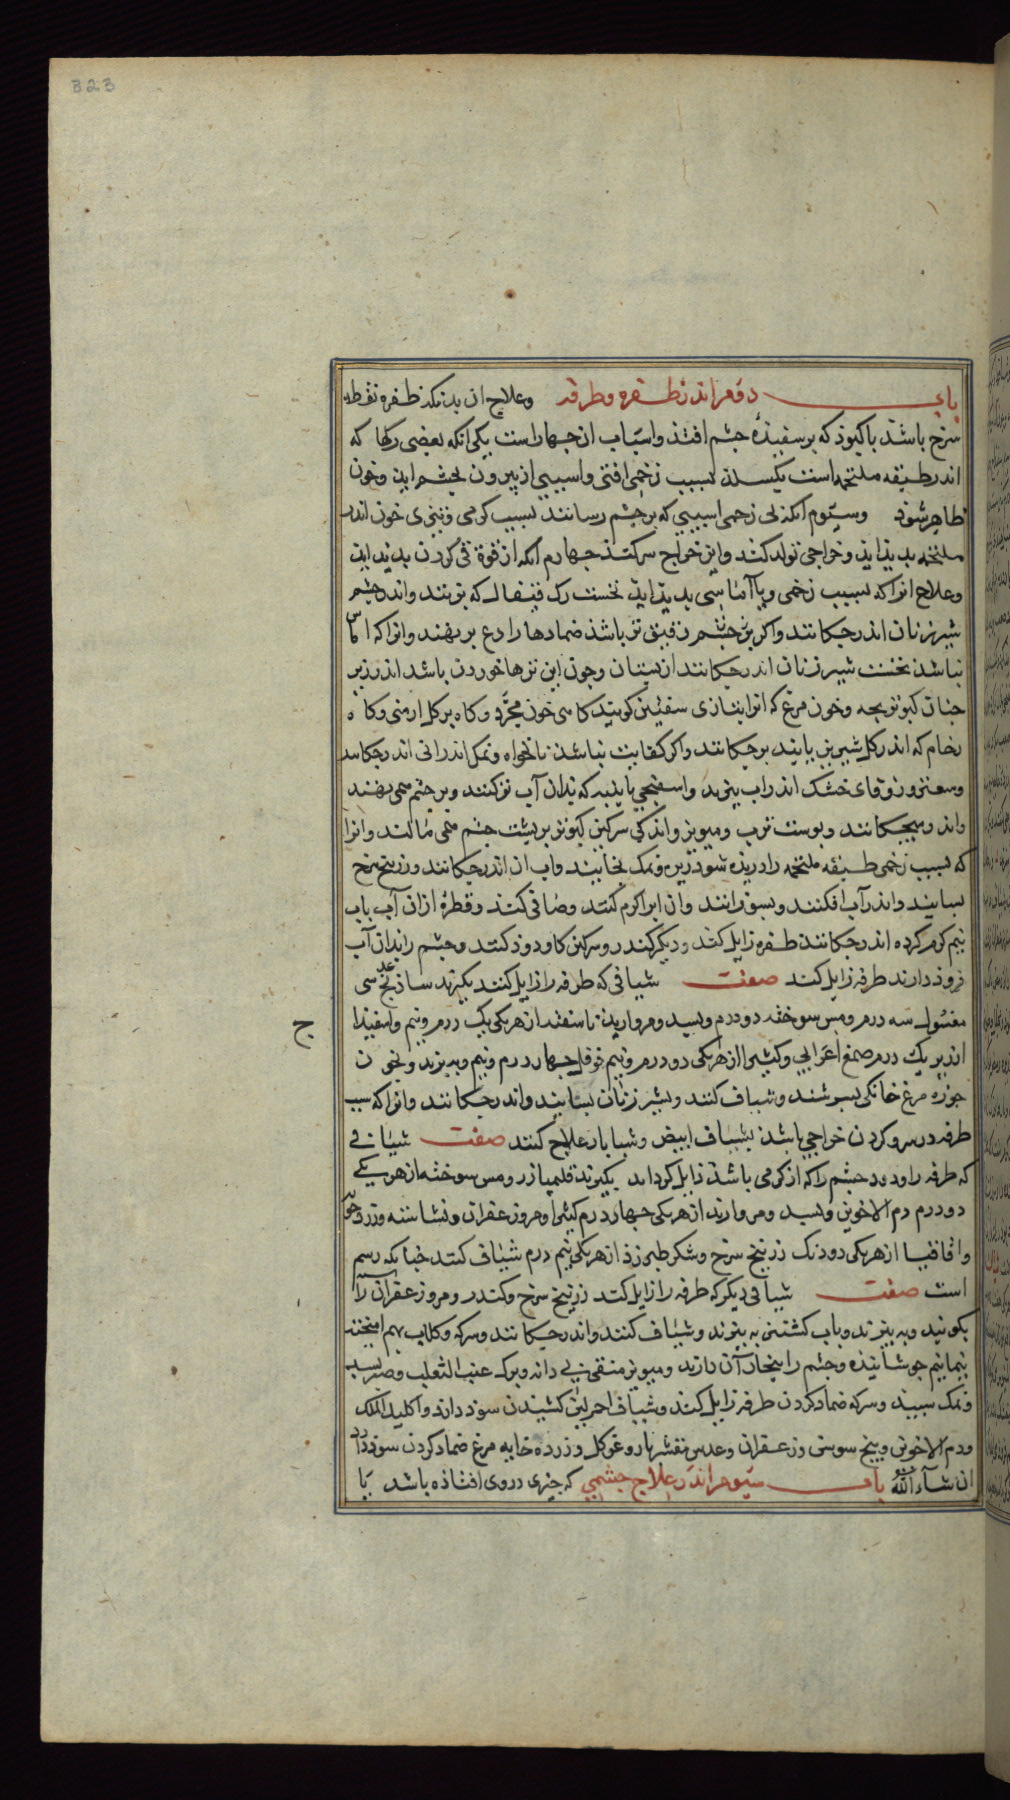 323
باب دوم اندر ظفره و طرفه وعلاج ان بدانکه ظفره نقطه
سرخ باشد یا کبوذ که بر سفیدهٔ جشم افتد واسباب ان جهاراست یکی انکه بعضی رکها که
اندر طبقه ملتحمه است بکسلد بسبب زخمی افتی واسیبی از بیرون بجشم اید وخون
ظاهر شود وسیّوم انکه بی زخمی اسیبی که بر جشم رسانند بسبب کرمی وتیزی خون اندر
ملتحمه بدید اید وخراجی تولد کند واین خراج سر کند جهارم انکه از قوة قی کردن بدید اید
وعلاج انرا که بسبب زخمی ویا آماسی بدید اید نخست رک قیفال که نزنند واندر جشم
شیر زنان اندر جکانند واکر جشم باشد ضمادها رادع برنهند وانرا که اماس
نباشد نخست شیر زنان اندر جکانند از بستان وجون این باشد اندر زیر
کبوتر بجه وخون مرغ که انرا بتازی کویند خون برکل ارمنی وکاه
رخام که اندر کل شیرین یابند برجکانند واکر کفایت نباشد نانخواه ونمک اندرانی اندر جکانند
وسعتر وزوفای خشک اندر اب ببزند واسفنجی یا بنبه که بدان آب تر کنند وبر جشم می نهند
واندر میجکانند وبوست ترب ومویز واندکی سرکین کبوتر بر بشت جشم می مالند وانرا
که بسبب زخمی طبقه ملتحمه را دریده شود زیره ونمک بخایند واب ان اندر جکانند وزرنیخ سرخ
بسایند واندر آب افکنند وان ابرا کرم کنند وصافی کنند وقطرهٔ ازان آب باب
نیم کرم کرده اندر جکانند طفره زایل کند ودیکر کندر وسرکین کاو دود کنند وجشم را بدان آب
فرود دارند طرفه زایل کند صفت شیافی که طرفه را زایل کنند بکیرند ساذنج عدسی
مغسول سه درم ومس سوخته دو درم وبسد ومروارید ناسفته از هر یکی یک درم ونیم واسفیداج
ارزیز یک درم صمغ اعرابی وکتیرا از هر یکی دو درم ونیم فوفل جهار درم ونیم وببزند وبخون
جوزه مرغ خانکی بسرشند وشیاف کنند وبشیر زنان بسایند واندر جکانند وانرا که سبب
طرفه در سر کردن خراجی باشد بشیاف ابیض وشیاباز علاج کنند صفت شیافی
که طرفه را ودرد جشم را که از کرمی باشد زایل کرداند بکیرند قلیمیا زر ومس سوخته از هر یکی
دو درم دم الاخوین وبسد ومروارید از هر یکی جهار درم کثیرا ومر وزعفران ونشاسته وزرد جوبه
واقاقیا از هر یکی دو دنک زرنیخ سرخ وشکر طبرزد از هر یکی نیم درم شیاف کنند جنانکه رسم
است صفت شیافی دیکر که طرفه را زایل کند زرنیخ سرخ وکندر ومر وزعفران را
بکوبند وببیزند وباب کشنیز ببزند وشیاف کنند واندر جکانند وسرکه وکلاب بهم امیخته
نیمانیم جوشانیذه وجشم را ببخار آن دارند ومویز منقی بی دانه وبرک عنب الثعلب وصبر بسد
ونمک سبید وسرکه ضماد کردن طرفه زایل کند وشیاف احر لین کشیدن سوذ دارد واکلیل الملک
ودم الاخوین وبیخ سوسن وزعفران وعدس مقشر باروغن کل وزرده خایه مرغ ضماد کردن سوذ دارد
ان شاء الله باب سیّوم اندر علاج جشمی که جیزی در وی افتاذه باشد یا
ج